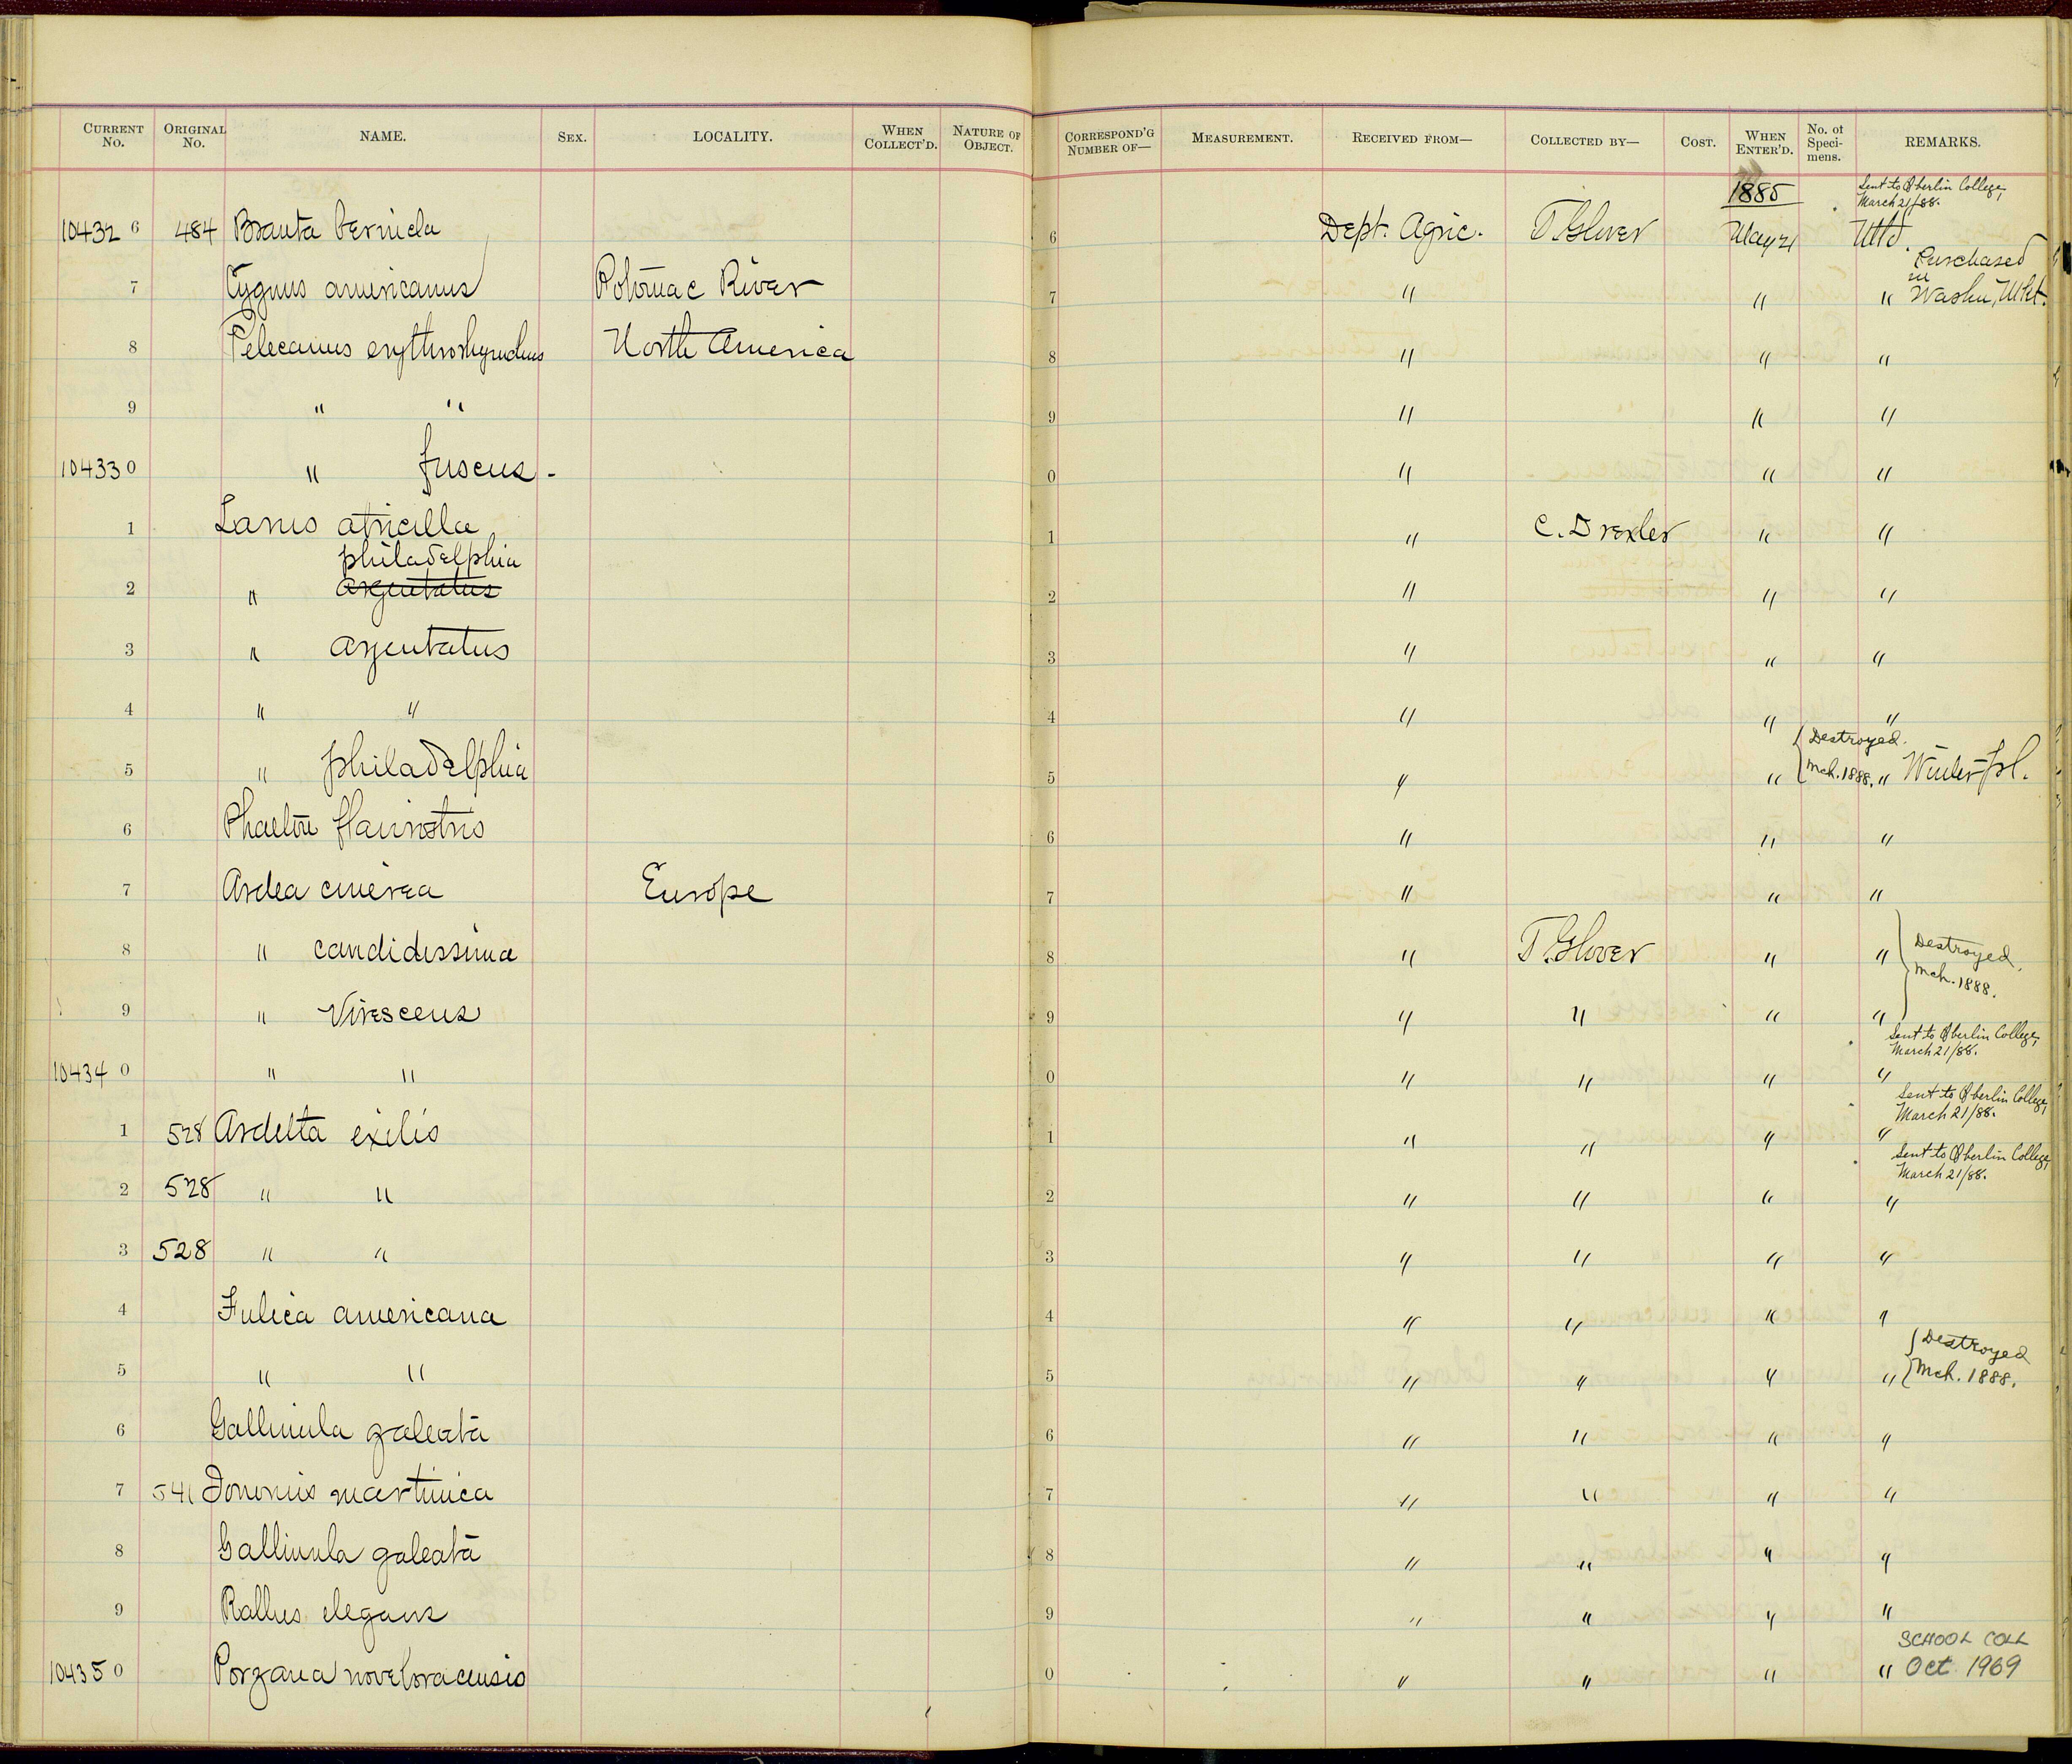 CURRENT No. ORIGINAL No. NAME. SEX. LOCALITY. WHEN COLLECT'D. NATURE OF OBJECT. CORRESPOND'G NUMBER OF— MEASUREMENT. RECEIVED FROM— COLLECTED BY— COST. WHEN ENTER'D. No. of Speci-mens. REMARKS.
1885 Sent to Oberlin College, March 21/88.
10432 6 484 Branta bernicla 6 Dept. Agric. T. Glover May 21 Mtd.
7 Cygnus americanus Potomac River 7 " " " Purchased in Washn, Mkt.
8 Pelecanus erythrorhynchus North America 8 " " "
9 " " 9 " " "
10433 0 " fuscus - 0 " " "
1 Larus atricilla 1 " C. Drexler " "
philadelphia
2 " argentatus 2 " " "
3 " argentatus 3 " " "
4 " " 4 " " "
5 " philadelphia 5 " " { Destroyed. Mch. 1888. " Winter pl.
6 Phaeton flavirostris 6 " " "
7 Ardea cinerea Europe 7 " " "
8 " candidissima 8 " T. Glover " " } Destroyed, Mch. 1888.
9 " Virescens 9 " " " "
Sent to Oberlin College, March 21/88.
10434 0 " " 0 " " " "
Sent to Oberlin College, March 21/88.
1 528 Ardetta exilis 1 " " " "
Sent to Oberlin College, March 21/88.
2 528 " " 2 " " " "
3 528 " " 3 " " " "
4 Fulica americana 4 " " " "
5 " " 5 " " " " { Destroyed Mch. 1888.
6 Gallinula galeata 6 " " " "
7 541 Ionornis martinica 7 " " " "
8 Gallinula galeata 8 " " " "
9 Rallus elegans 9 " " " "
SCHOOL COLL
10435 0 Porzana noveboracensis 0 " " " " Oct 1969